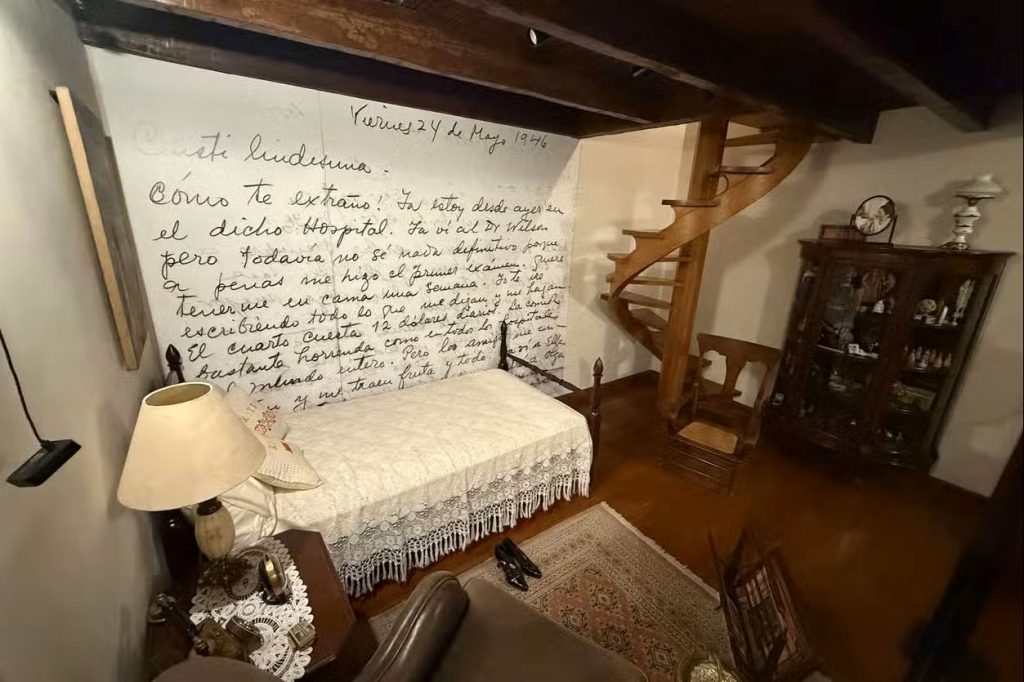 Viernes 24 de Mayo 1946
Cristi lindisima.
Cómo te extraño! Ya estoy desde ayer en
el dicho Hospital. Ya vi al Dr Wilson
pero todavía no sé nada definitivo porque
a penas me hizo el primer exámen. Quiere
tenerme en cama una semana. Yo te iré
escribiendo todo lo que me digan y me hagan
El cuarto cuesta 12 dólares diarios. La comida
bastante horrenda como en todos los hospitales
mundo entero. Pero los amigos me
y me traen fruta y todo